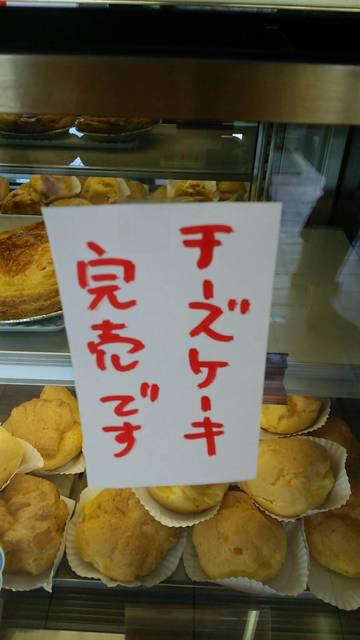 チーズケーキ
完売です